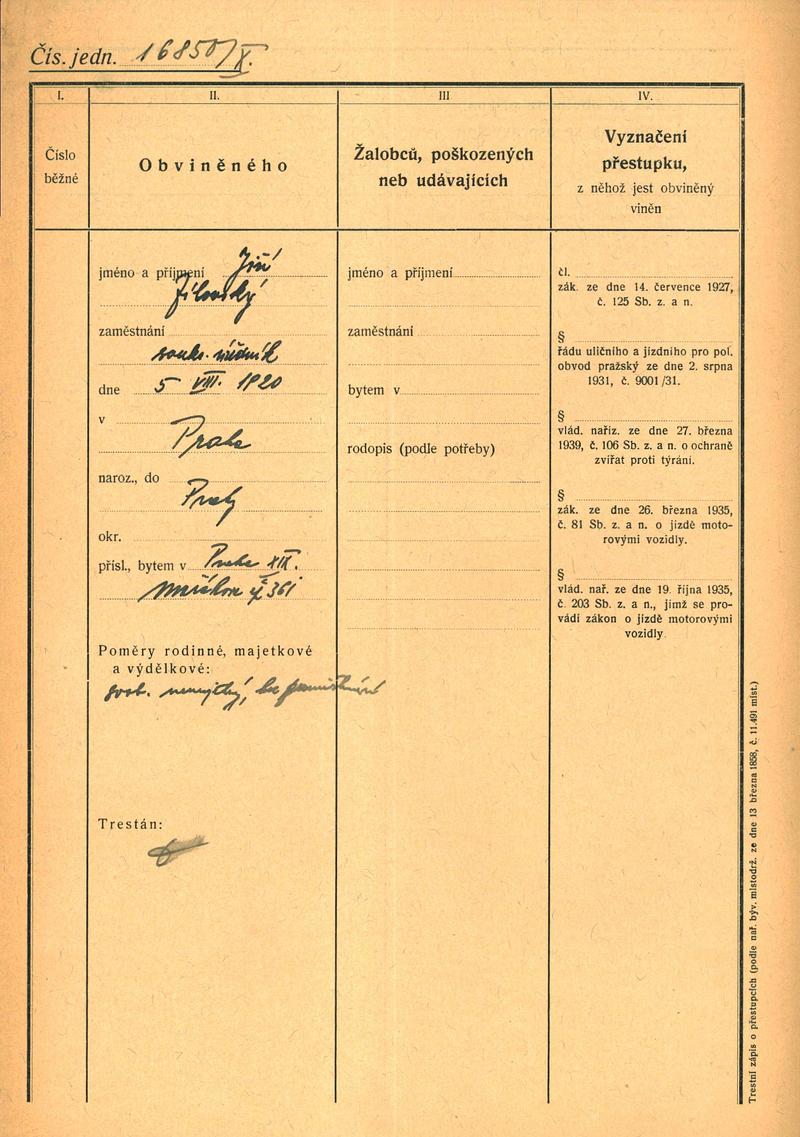 Čís. jedn. 16850/X.
I.
Číslo
běžné
II.
Obviněného
III
Žalobců, poškozených
neb udávajících
IV.
Vyznačení
přestupku,
z něhož jest obviněný
viněn
jméno a příjmení Jiří
Jílovský
zaměstnání
soukr. úředník
dne 5 VIII. 1920
v
Praha
naroz., do
Prahy
okr.
přísl., bytem v Praha XIX.
č 361
Poměry rodinné, majetkové
a výdělkové:
svob. nemajetný, bez
Trestán:
jméno a příjmení
zaměstnání
bytem v
rodopis (podle potřeby)
čl.
zák. ze dne 14. července 1927,
č. 125 Sb. z. a n.
§
řádu uličního a jízdního pro pol.
obvod pražský ze dne 2. srpna
1931, č. 9001/31.
§
vlád. naříz. ze dne 27. března
1939, č. 106 Sb. z. a n. o ochraně
zvířat proti týrání.
§
zák. ze dne 26. března 1935,
č. 81 Sb. z. a n. o jízdě moto-
rovými vozidly.
§
vlád. nař. ze dne 19. října 1935,
č. 203 Sb. z. a n., jímž se pro-
vádí zákon o jízdě motorovými
vozidly
Trestní zápis o přestupcích (podle nař. býv. místodrž. ze dne 13 března 1858, č. 11.491 míst.)